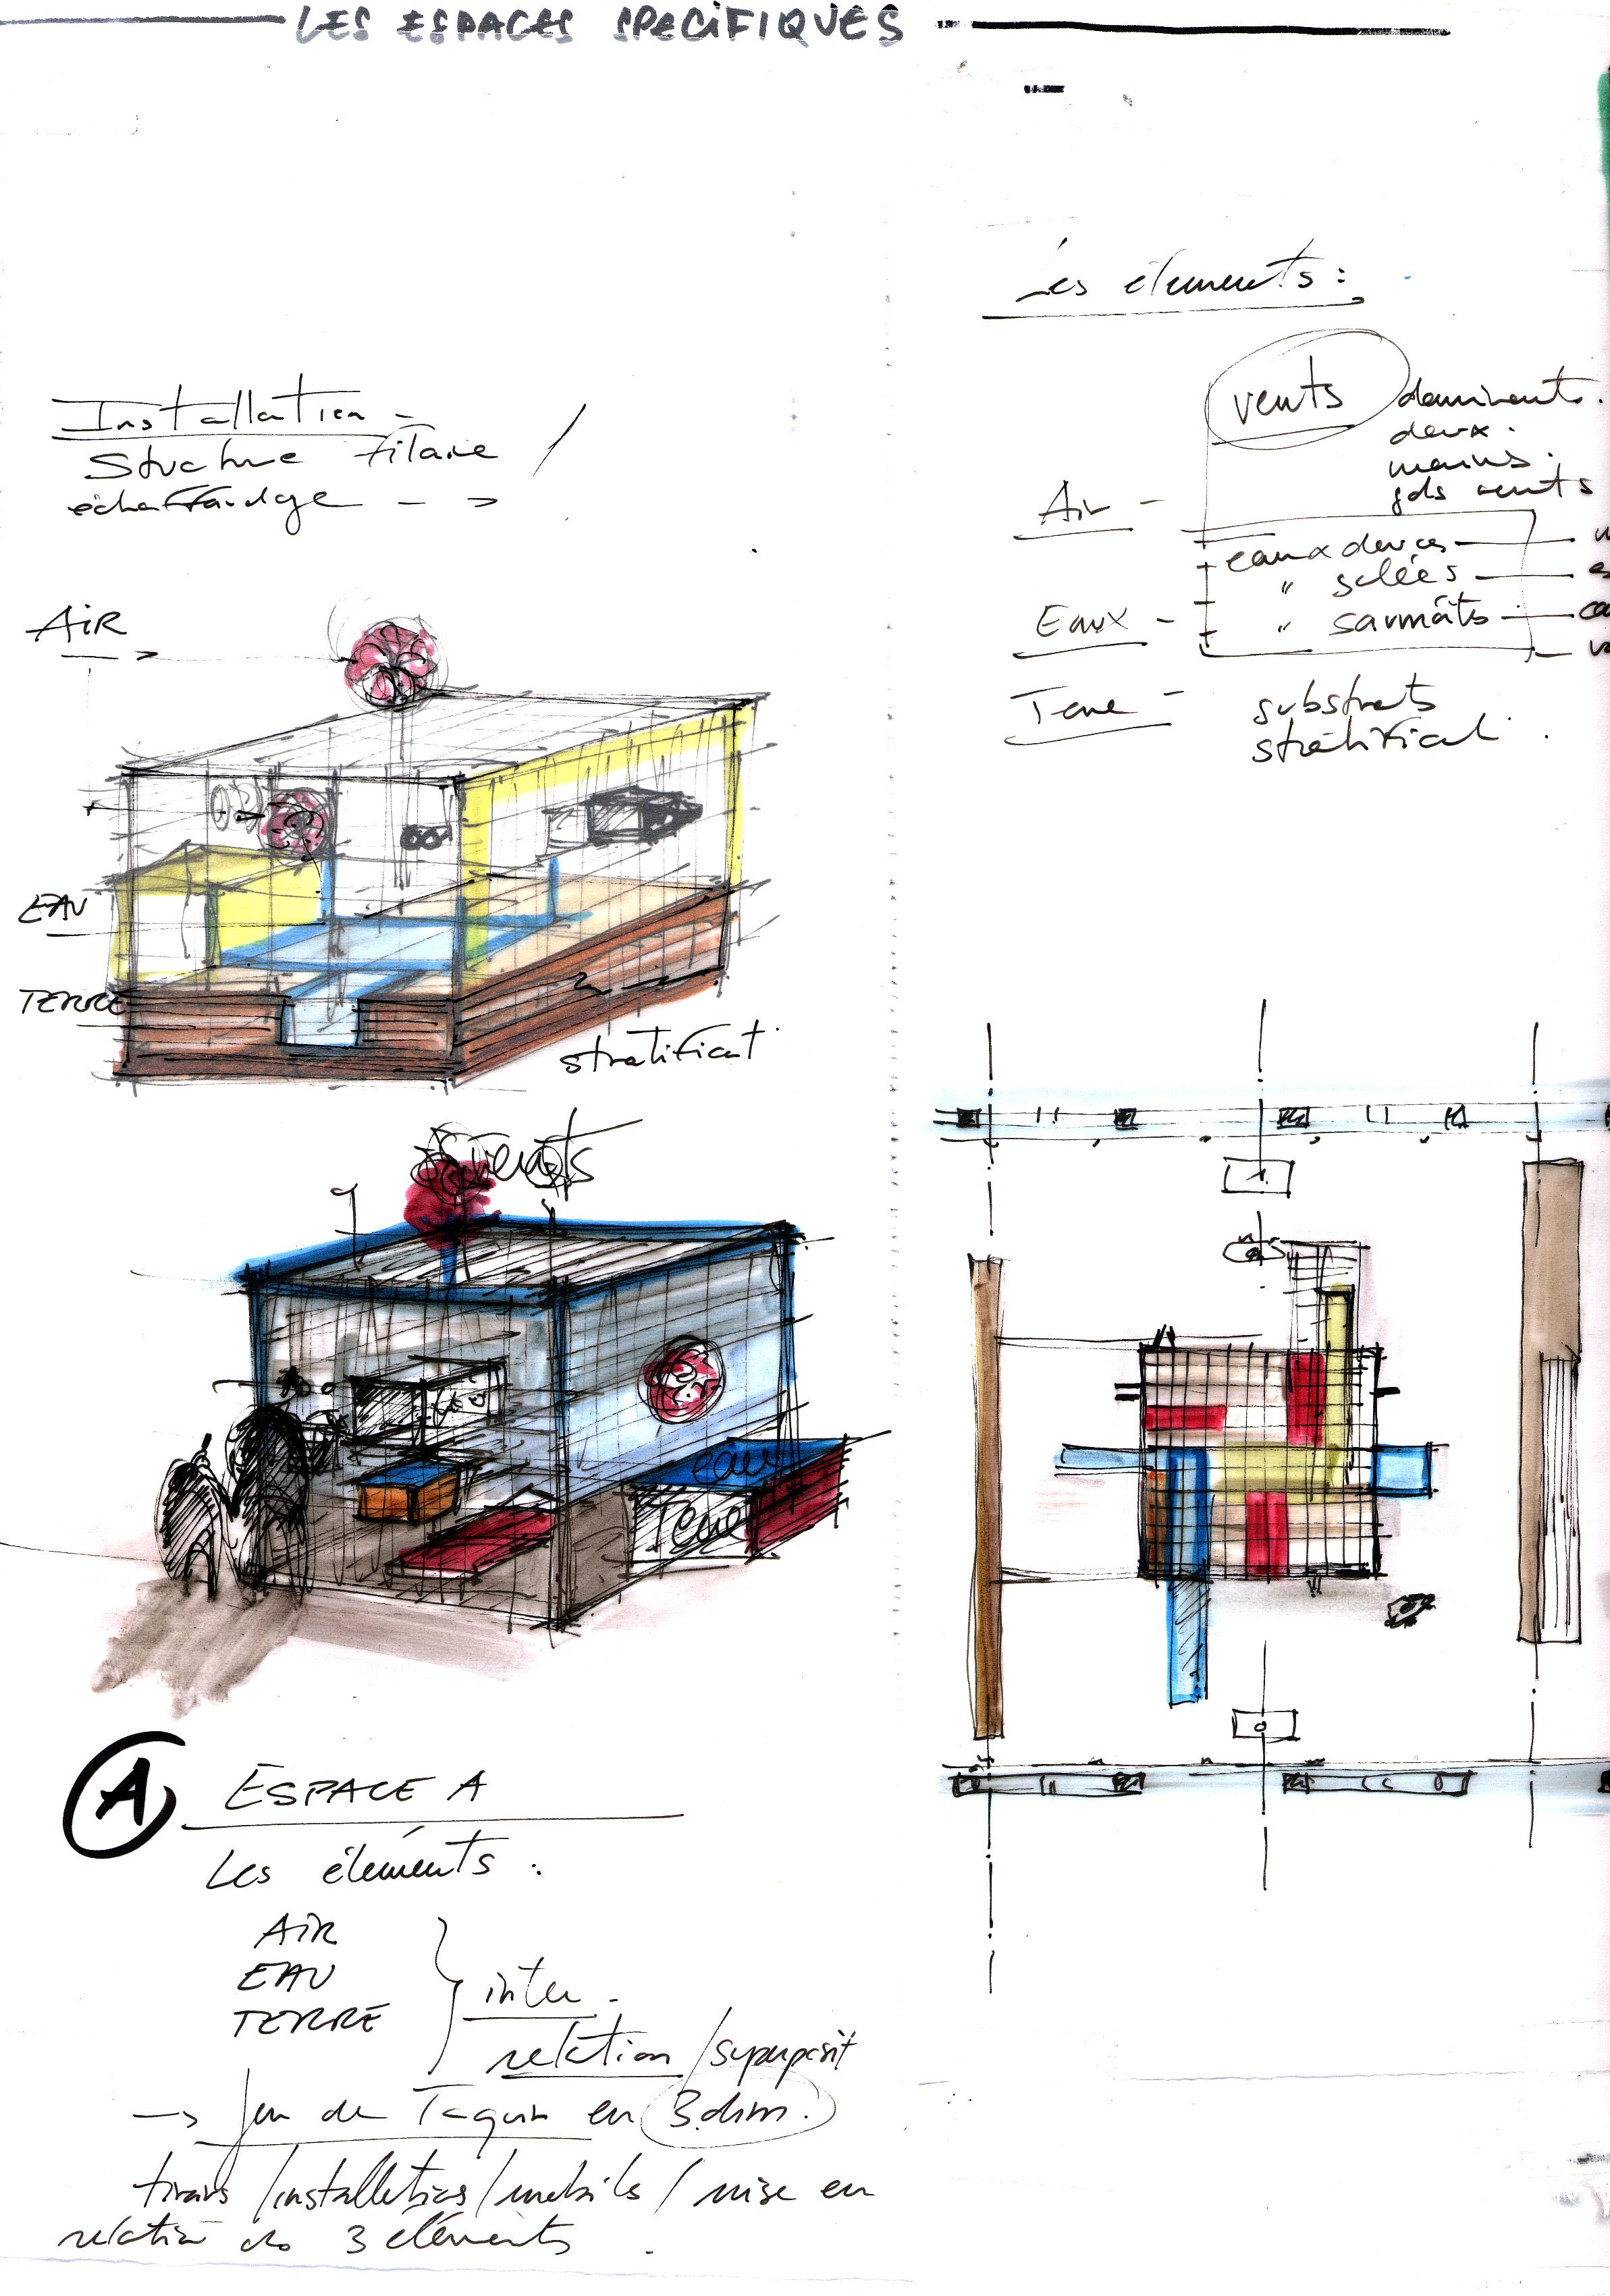 LES ESPACES SPECIFIQUES
Installation -
Structure filaire /
échaffaudge - ->
AIR
EAU
TERRE
stratificat
vents
eau
Terre
A
ESPACE A
Les éléments :
AIR
EAU
TERRE
inter -
relation / superposit
-> Jeu de Taquin en 3 dim.
tiroirs / installations / mobils / mise en
relation des 3 éléments .
Les élements :
vents dominents.
doux.
marins.
gds vents
Air -
eaux douces
" salées
Eaux - " saumâts
Terre - substrats
stratificat .